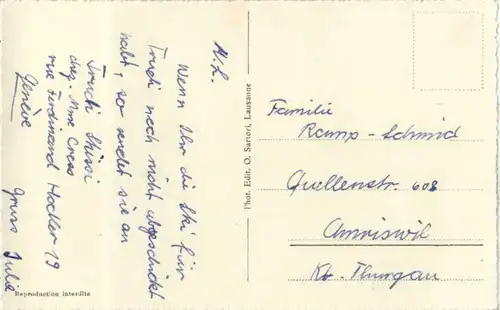 M. L.
Wenn Ihr die Ski für
Trudi noch nicht abgeschickt
habt, so sendet sie an
Trudi
chez. Mme Cress
rue Ferdinand Hodler 19
Genève
Gruss Julie
Reproduction interdite
Phot. Edit. O. Sartori, Lausanne
Familie
Ramp - Schmid
Quellenstr. 608
Amriswil
Kt. Thurgau